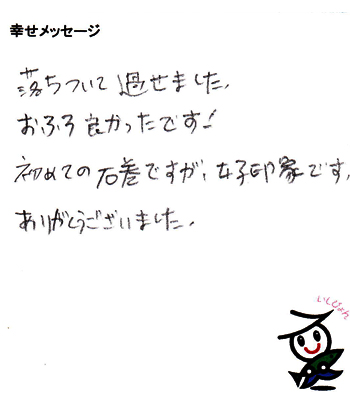 幸せメッセージ
落ちついて過せました。
おふろ良かったです!
初めての石巻ですが、好印象です。
ありがとうございました。
いしぴょん